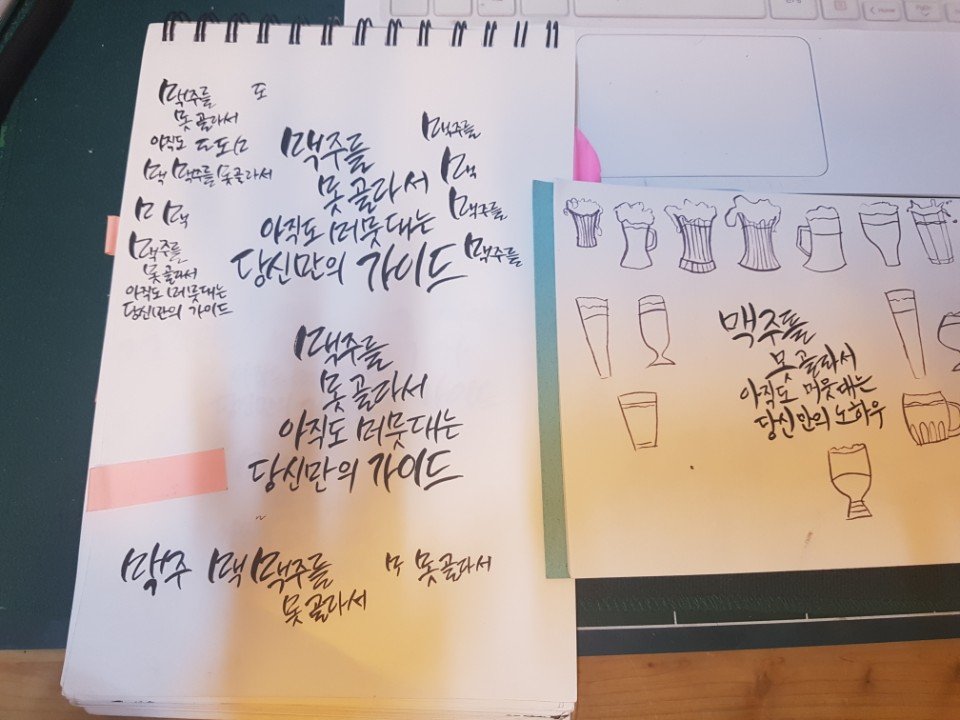 맥주를
못 골라서
아직도 ㄷ 도 ㅁ
맥 맥주를 못골라서
ㅁ 맥
맥주를
못골라서
아직도 머뭇대는
당신만의 가이드
또
맥주를
못 골라서
아직도 머뭇대는
당신만의 가이드
맥주를
맥
맥주를
맥주를
맥주를
못 골라서
아직도 머뭇대는
당신만의 가이드
맥주 맥 맥주를
못 골라서
못 골라서
맥주를
못 골라서
아직도 머뭇대는
당신만의 노하우